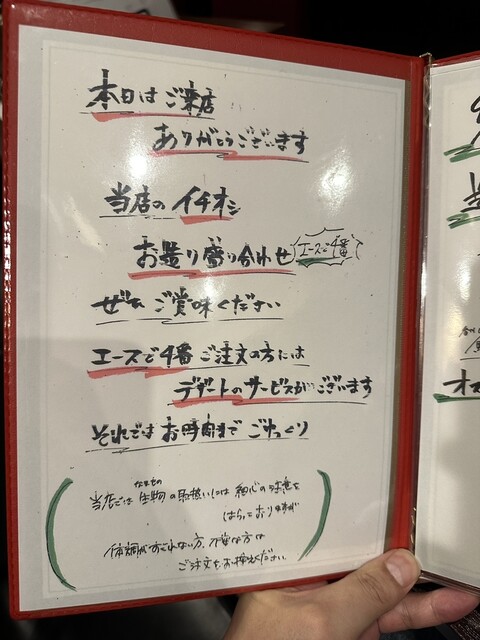 本日はご来店
ありがとうございます
当店のイチオシ
お造り盛り合わせ エースで4番
ぜひ ご賞味ください
エースで4番 ご注文の方には
デザートのサービスがございます
それでは お時間まで ごゆっくり
なまもの
当店では 生物の取扱いには 細心の注意を
はらっておりますが
体調がすぐれない方、不安な方は
ご注文をお控えください。